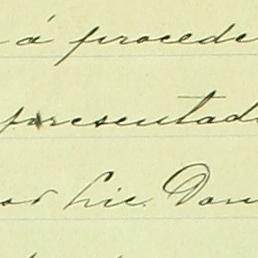 á procede
presentad
or Lic. Dan